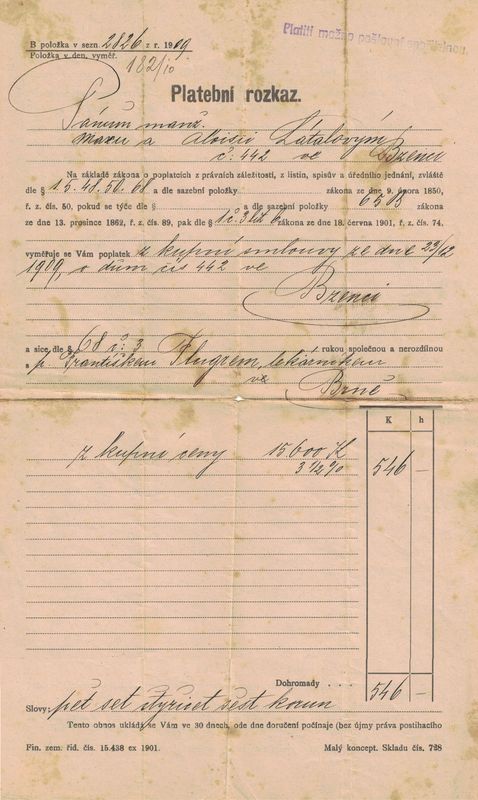 B položka v sezn. 2826 z r. 1909
Položka v den. vyměř.
182/10
Platiti možno poštovní spořitelnou
Platební rozkaz.
Pánům manž.
Maxu a Aloisii Látalovým
č. 442 ve Bzenci
Na základě zákona o poplatcích z právních záležitostí, z listin, spisův a úředního jednání, zvláště
dle § 1. 5. 48. 50. 68 a dle sazební položky zákona ze dne 9. února 1850,
ř. z. čís. 50, pokud se týče dle § a dle sazební položky 65 B zákona
ze dne 13. prosince 1862, ř. z. čís. 89, pak dle § 1 č. 3 lit b zákona ze dne 18. června 1901, ř. z. čís. 74,
vyměřuje se Vám poplatek z kupní smlouvy ze dne 22/12
1909, o dům čís 442 ve
Bzenci
a sice, dle § 68 č: 3 rukou společnou a nerozdílnou
s p. Františkem Flugrem, lékárníkem
ve Brně
K h
z kupní ceny 15600 K
3 1/2 % 546 —
Dohromady . . . 546 —
Slovy: pět set čtyřicet šest korun
Tento obnos ukládá se Vám ve 30 dnech, ode dne doručení počínaje (bez újmy práva postihacího
Fin. zem. řid. čís. 15.438 ex 1901. Malý koncept. Skladu čís. 728